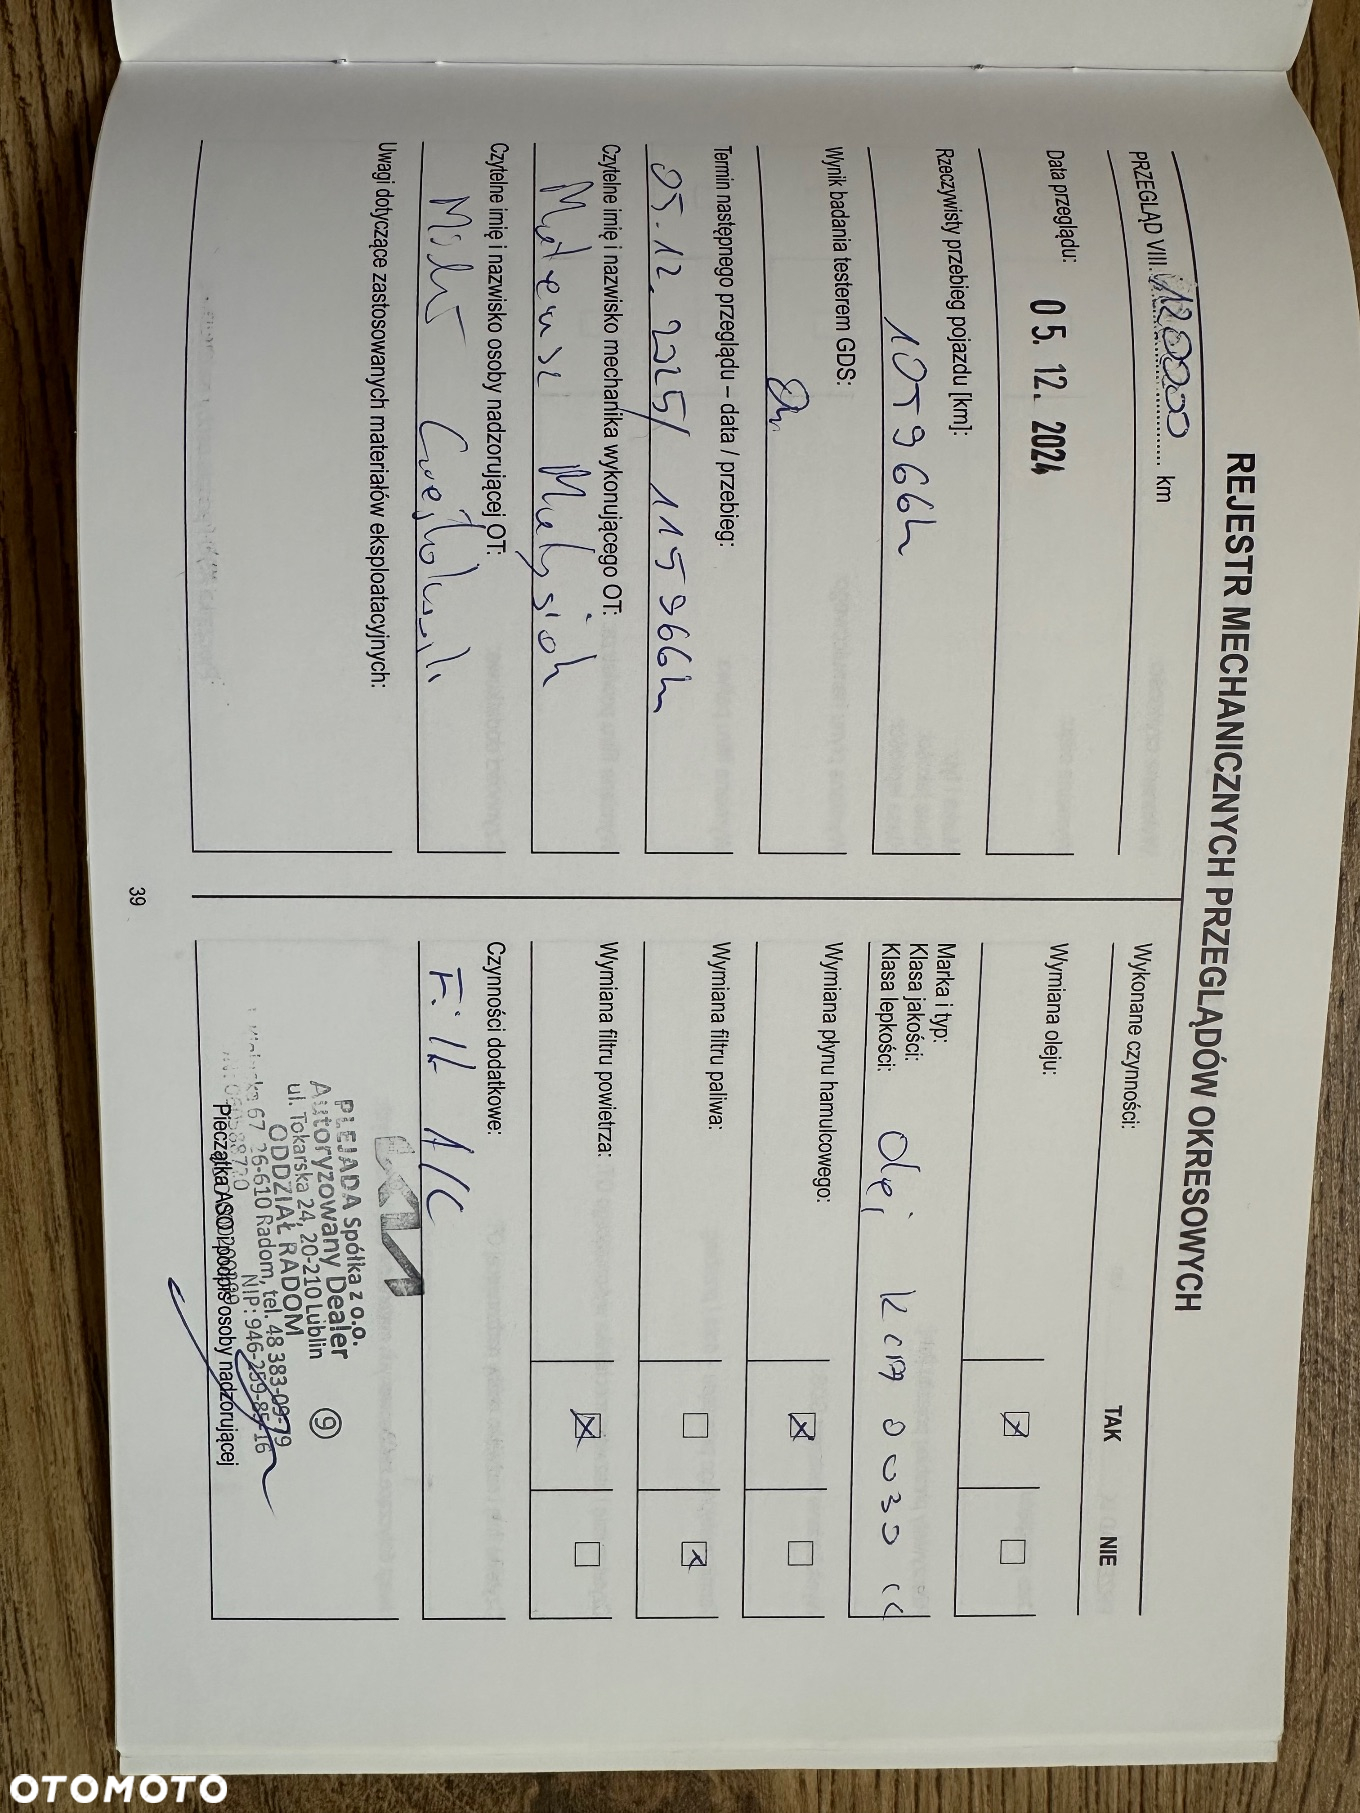 REJESTR MECHANICZNYCH PRZEGLĄDÓW OKRESOWYCH
PRZEGLĄD VIII 12000 km
Data przeglądu: 05. 12. 2024
Rzeczywisty przebieg pojazdu [km]:
105966h
Wynik badania testerem GDS:
Termin następnego przeglądu – data / przebieg:
05.12.2025/ 115966h
Czytelne imię i nazwisko mechanika wykonującego OT:
Mateusz
Czytelne imię i nazwisko osoby nadzorującej OT:
Uwagi dotyczące zastosowanych materiałów eksploatacyjnych:
Wykonane czynności: TAK NIE
Wymiana oleju:
Marka i typ:
Klasa jakości:
Klasa lepkości: Olej
Wymiana płynu hamulcowego:
Wymiana filtru paliwa:
Wymiana filtru powietrza:
Czynności dodatkowe:
Filt A/C
KIA
PLEJADA Spółka z o.o.
Autoryzowany Dealer 9
ul. Tokarska 24, 20-210 Lublin
ODDZIAŁ RADOM
67 26-610 Radom, tel. 48 383-09-79
NIP: 946-259-85-16
Pieczątka ASO i podpis osoby nadzorującej
39
OTOMOTO